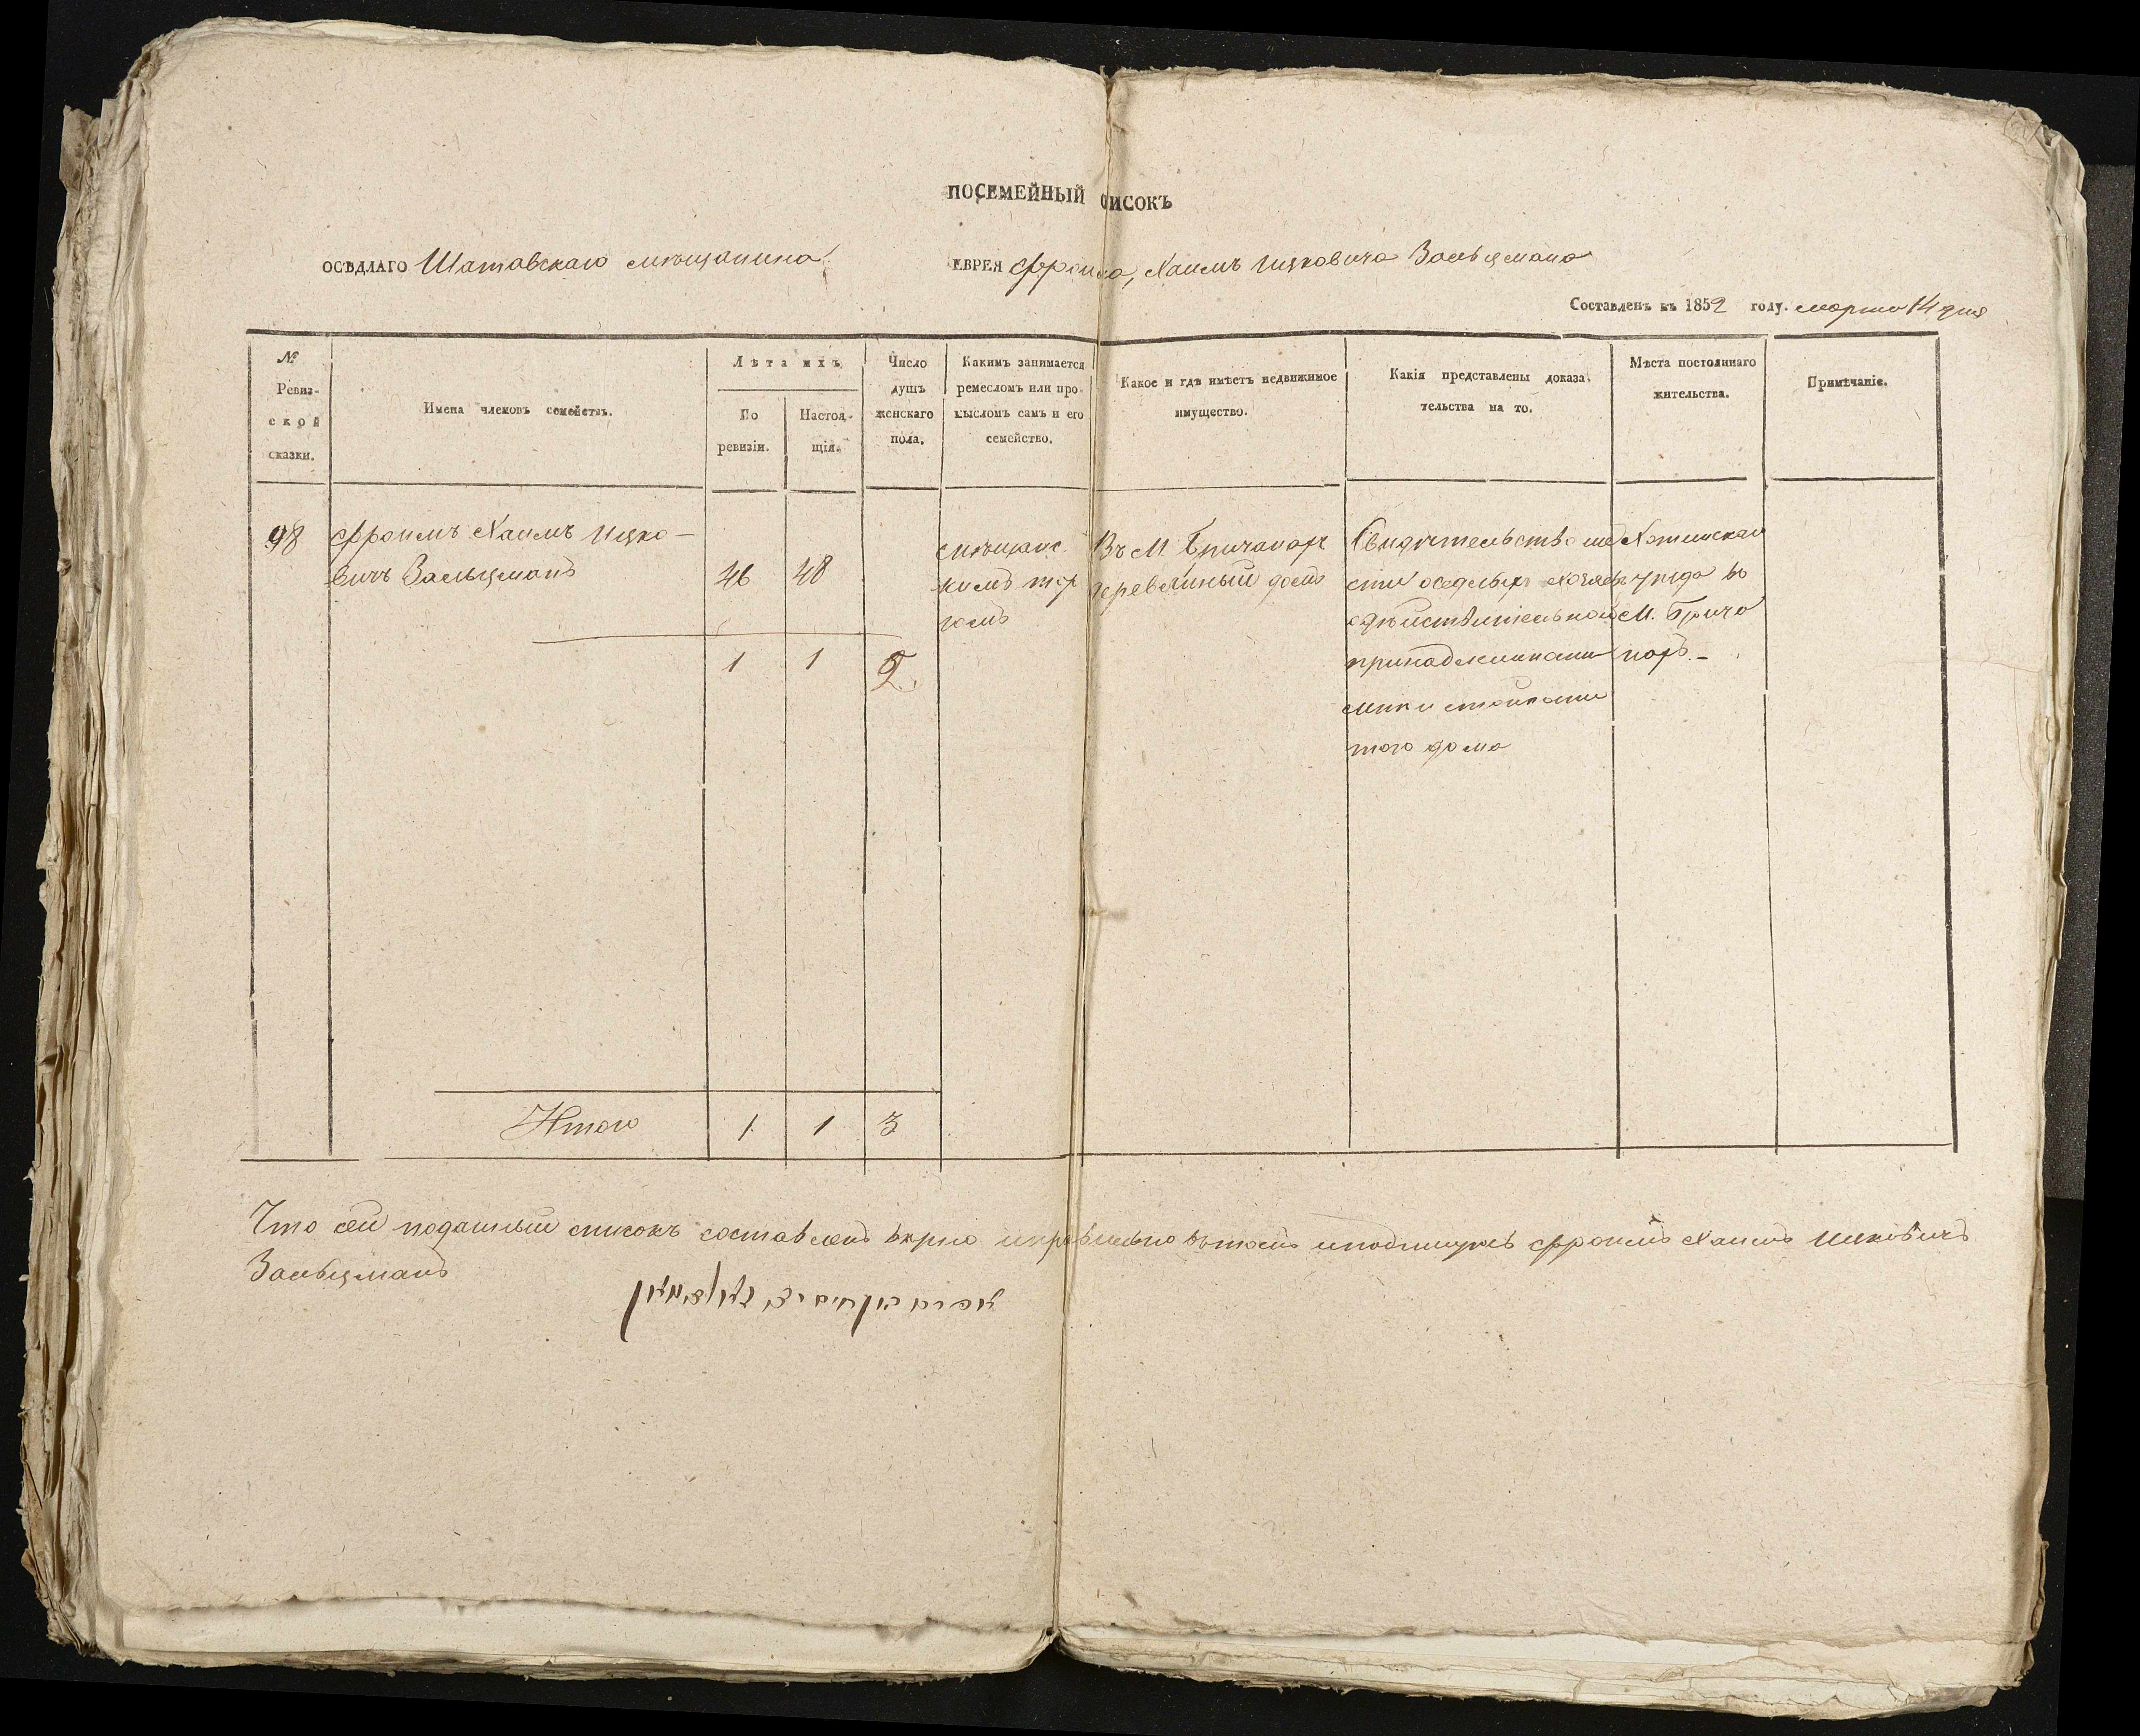 ПОСЕМЕЙНЫЙ СПИСОКЪ
ОСѢДЛАГО Шатавскаго мѣщанина ЕВРЕЯ Фроима, Хаимъ Ицковича Зальцмана
Составленъ въ 1852 году. марта 14 дня
№ Ревизской сказки.
Имена членовъ семействъ.
Лѣта ихъ
По ревизіи.
Настоящія.
Число душъ женскаго пола.
Какимъ занимается ремесломъ или промысломъ самъ и его семейство.
Какое и гдѣ имѣетъ недвижимое имущество.
Какія представлены доказательства на то.
Мѣста постояннаго жительства.
Примѣчаніе.
98
Фроимъ Хаимъ Ицко-
вичъ Зальцманъ
46 48
мѣщанс
кимъ тор
гомъ
Въ М. Бричанахъ
деревянный домъ
Свидѣтельство ше
сти оседлыхъ хозяевъ
дѣйствительной
принадлежности
того дома
Хотинскаго
уѣзда въ
М. Брича
нахъ.-
1 1
Итого 1 1 3
Что сей поданный списокъ составленъ верно и правильно въ томъ и подпишусь Фроимъ Хаимъ Ицковичъ
Зальцманъ